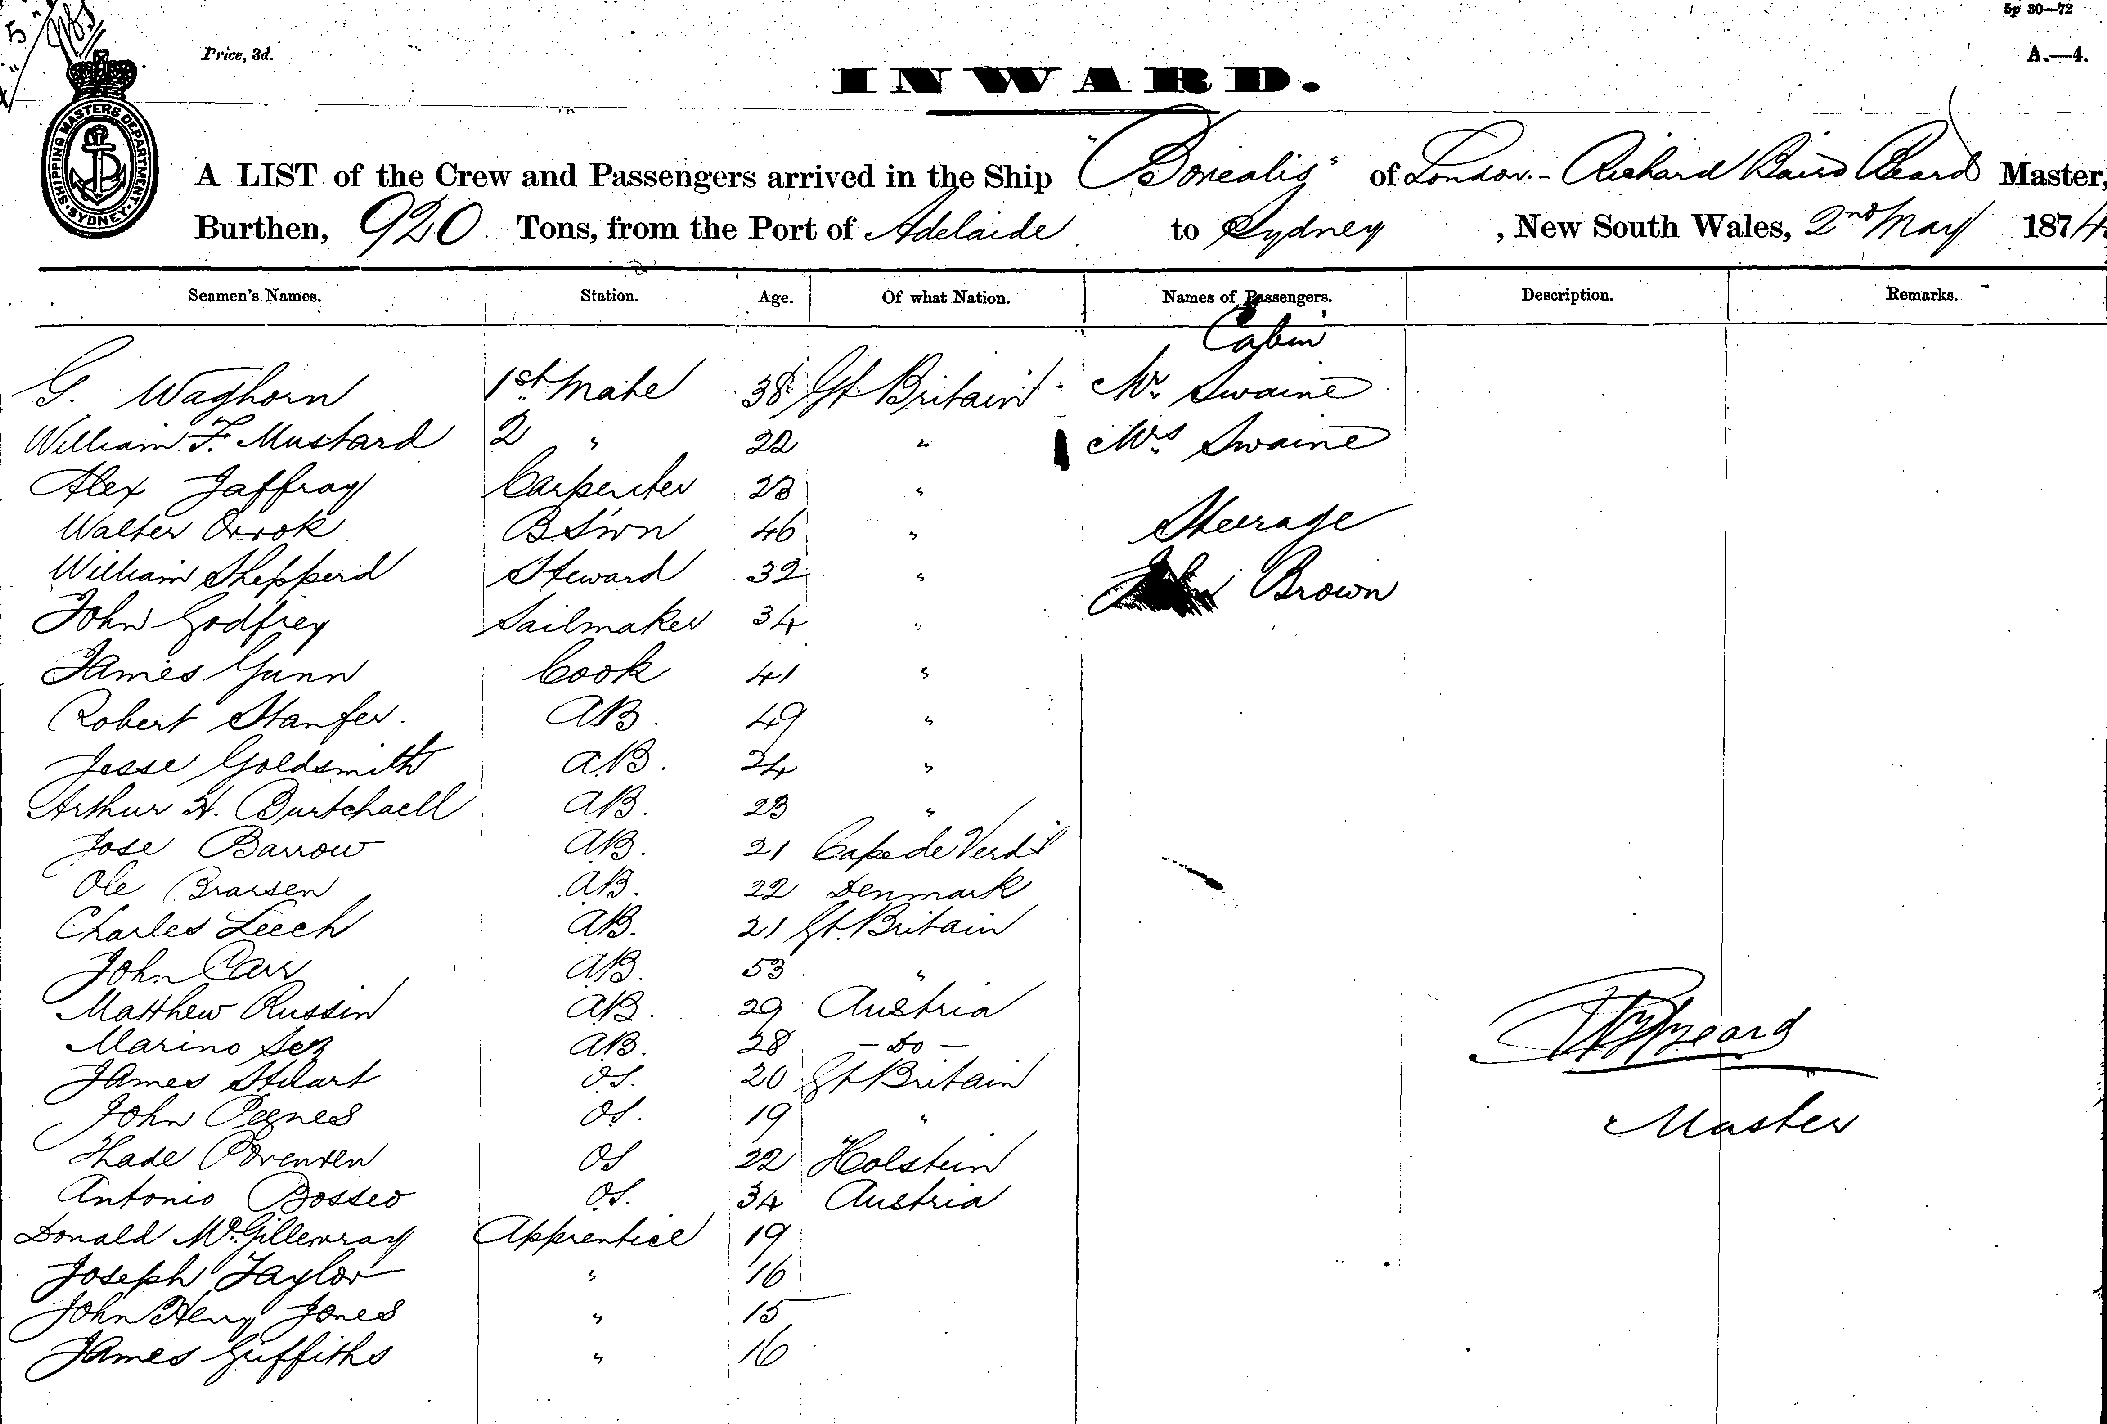 5p 30—72
Price, 3d.
A.—4.
INWARD.
SHIPPING MASTERS DEPARTMENT. SYDNEY.
A LIST of the Crew and Passengers arrived in the Ship "Borealis" of London - Richard Baird Beard Master,
Burthen, 920 Tons, from the Port of Adelaide to Sydney, New South Wales, 2nd May 1874.
Seamen's Names. Station. Age. Of what Nation. Names of Passengers. Description. Remarks.
Cabin
G. Waghorn 1st Mate 38 Gt Britain Mr. Swaine
William F. Mustard 2 " 22 " Mrs. Swaine
Alex Jaffray Carpenter 23 "
Walter Orrok BSwn 46 " Steerage
William Shepperd Steward 32 " John Brown
John Godfrey Sailmaker 34 "
James Gunn Cook 41 "
Robert Stanfer. AB. 49 "
Jesse Goldsmith AB. 24 "
Arthur H. Burtchaell AB. 23 "
Jose Barrow AB. 21 Cape de Verd
Ole AB. 22 Denmark
Charles Leech AB. 21 Gt. Britain
John Carr AB. 53 "
Matthew Russin AB. 29 Austria
Marino AB. 28 - Do -
James Stuart OS. 20 Gt Britain
John Pegnes OS. 19 "
Thade OS 22 Holstein
Antonio Bosseo OS. 34 Austria
Donald McGillewray Apprentice 19
Joseph Taylor " 16
John Henry Jones " 15
James Griffiths " 16
Beard
Master